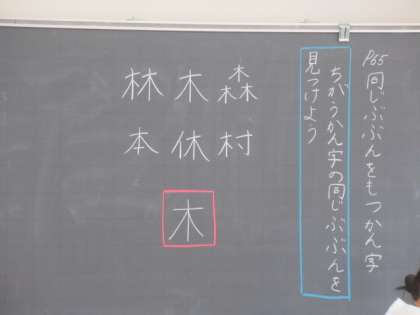 P65 同じぶぶんをもつかん字
ちがうかん字の同じぶぶんを
見つけよう
森 木 林
村 休 本
木